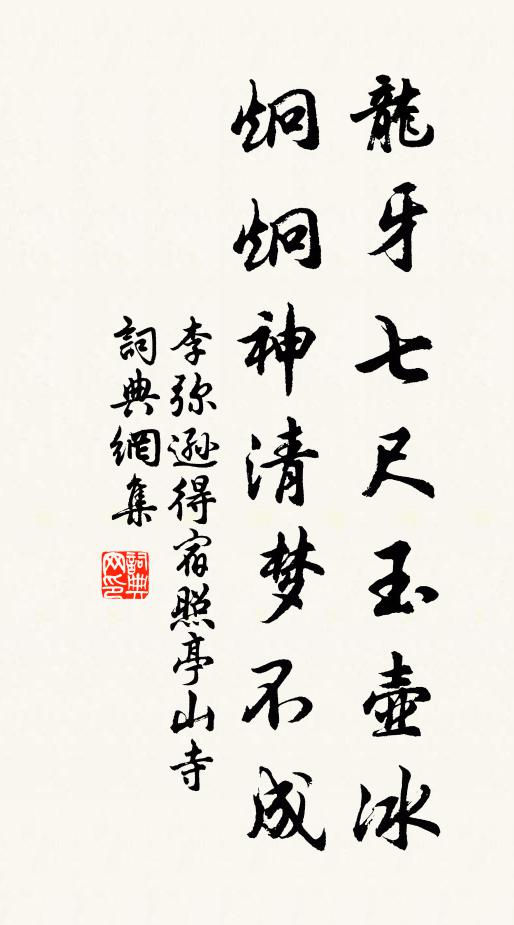 龍牙七尺玉壺冰
炯炯神清梦不成
李弥遜得宿照亭山寺
詞典網集
詞典网印